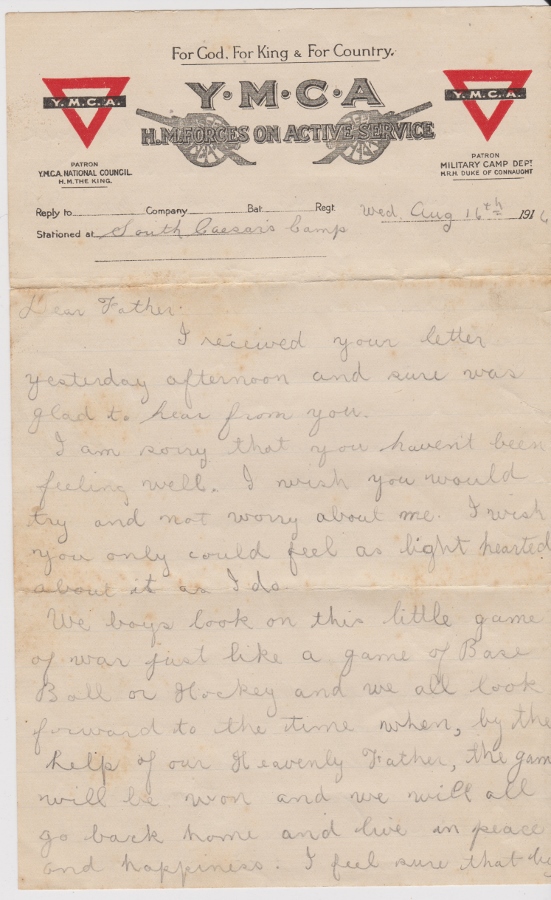 For God, For King & For Country.
Y·M·C·A
H.M. FORCES ON ACTIVE SERVICE
Y.M.C.A.
PATRON
Y.M.C.A. NATIONAL COUNCIL.
H.M. THE KING.
Y.M.C.A.
PATRON
MILITARY CAMP DEPT
H.R.H. DUKE OF CONNAUGHT
Reply to Company Bat. Regt. Wed. Aug 16th 1916
Stationed at South Caesar's Camp
Dear Father:
I received your letter
yesterday afternoon and sure was
glad to hear from you.
I am sorry that you haven't been
feeling well. I wish you would
try and not worry about me. I wish
you only could feel as light hearted
about it as I do
We boys look on this little game
of war just like a game of Base
Ball or Hockey and we all look
forward to the time when, by the
help of our Heavenly Father, the gam
will be won and we will all
go back home and live in peace
and happiness. I feel sure that